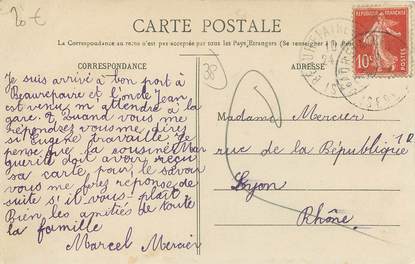 20 €
CARTE POSTALE
La Correspondance au recto n'est pas acceptée par tous les Pays Etrangers (Se renseigner à la Poste)
CORRESPONDANCE
ADRESSE
38
10c
Je suis arrivé à bon port à
Beaurepaire et l'oncle Jean
est venu m attendre à la
gare. Quand vous me
répondrez vous me direz
si Eugène travaille Je
pense que la cousine Mar
guerite doit avoir reçu
sa carte pour le savoir
vous me ferez réponse de
suite s'il vous-plaît
Bien les amitiés de toute
la famille
Marcel Mercier
Madame Mercier
rue de la République
Lyon
Rhône